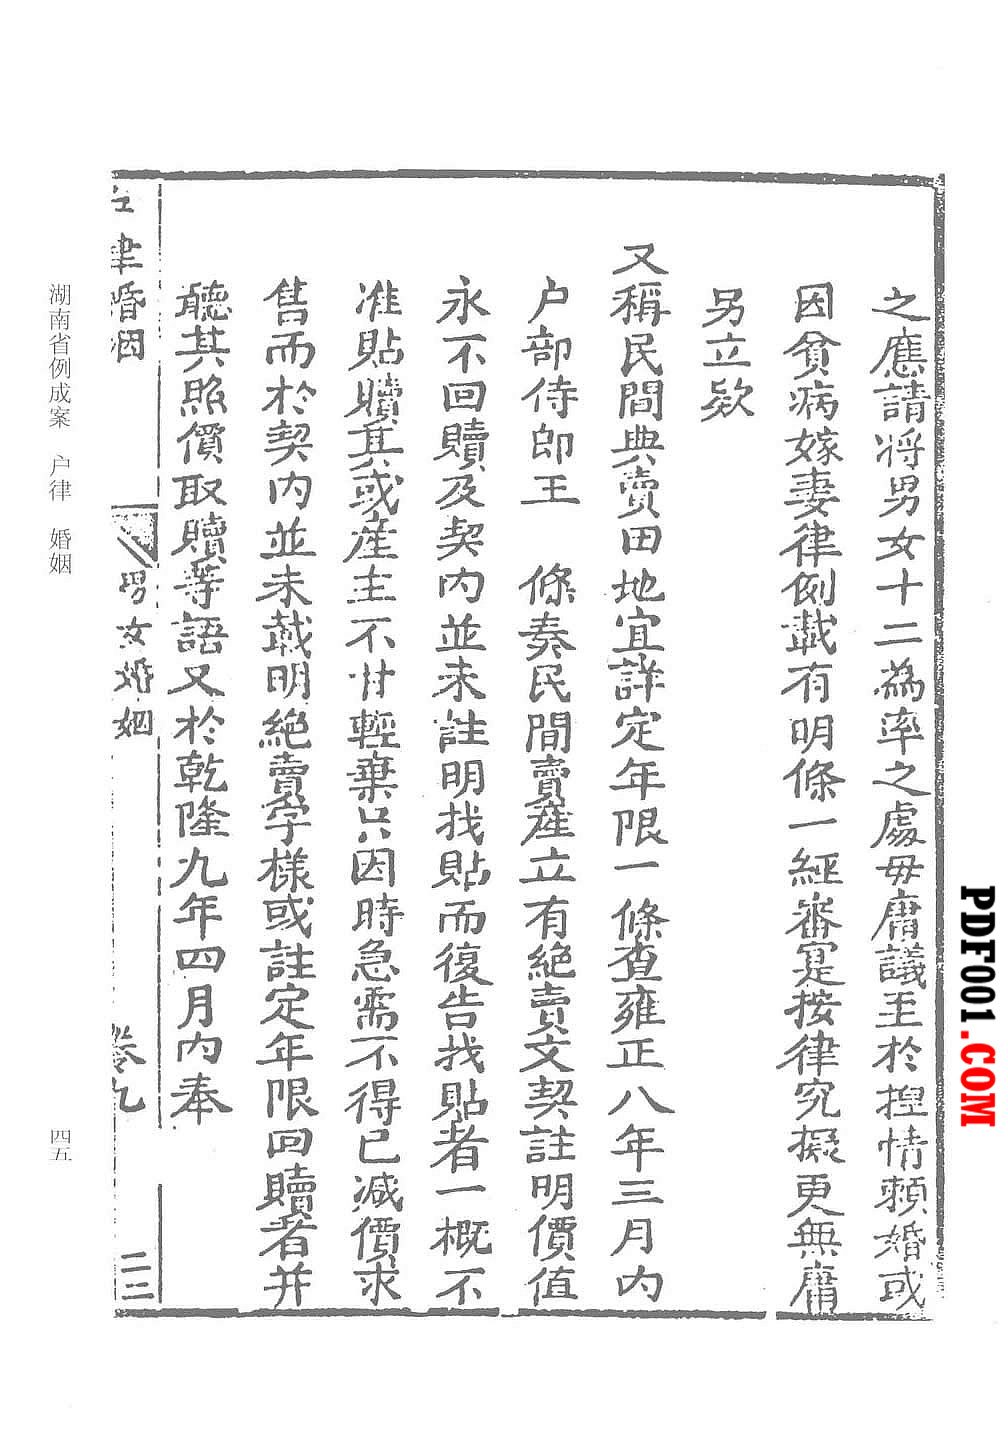 之應請將男女十二為率之處毋庸議至於揑情頼婚或
因貧病嫁妻律例載有明條一經審寔按律究擬更無庸
另立欵
又稱民間典賣田地宜詳定年限一條查雍正八年三月内
户部侍郎王　條奏民間賣產立有絕賣文契註明價值
永不回贖及契内並未註明找貼而復告找貼者一概不
准貼贖其或産主不甘輕棄只因時急需不得已減價求
售而於契内並未載明絕賣字様或註定年限回贖者并
聽其照價取贖等語又於乾隆九年四月内奉
户律婚姻　男女婚姻　卷九　二三
湖南省例成案　户律　婚姻
四五
PDF001.COM